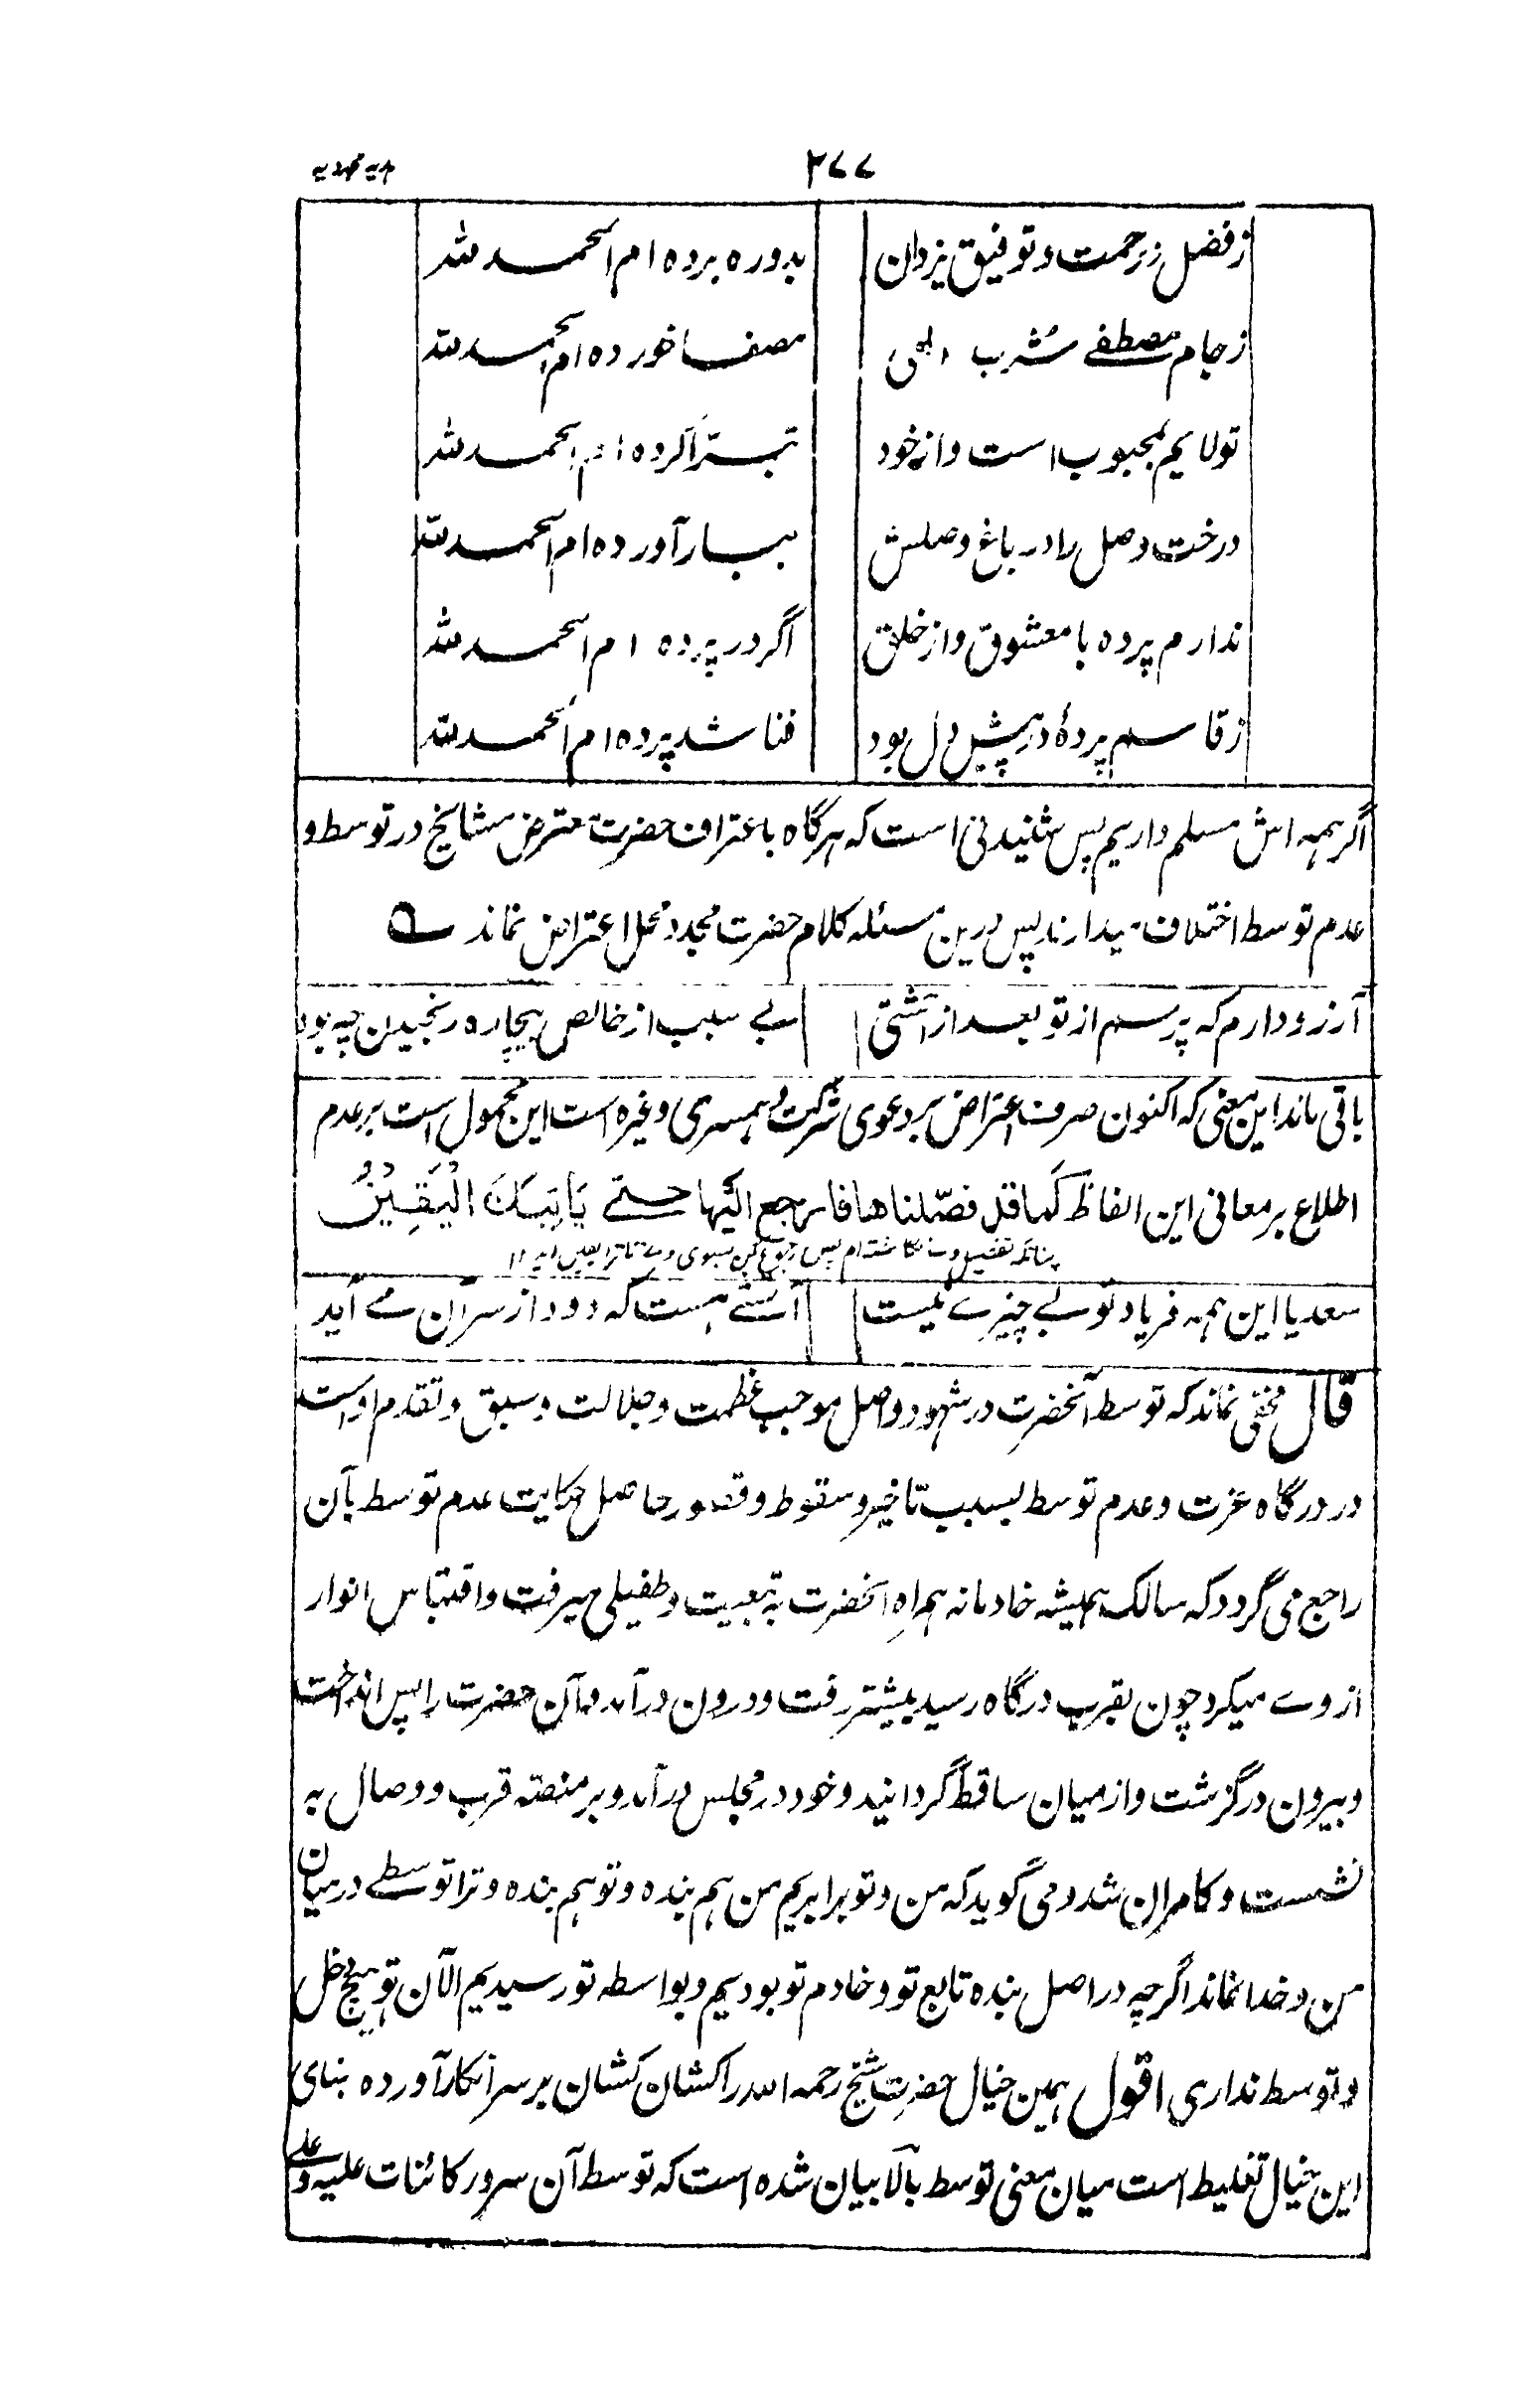 ۲۷۷
ہدیہ مجددیہ
ز فضل ز رحمت و توفیق یزدان بدوره برده ام الحمد لله
ز جام مصطفے شرب الہی مصفا خورده ام الحمد لله
تولایم بمحبوب است و از خود تبرّا کرده ام الحمد لله
درخت وصل را در باغ وصلش ببار آورده ام الحمد لله
ندارم پرده با معشوق و از خلق اگر در پرده ام الحمد لله
ز قاسم پردۂ در پیش دل بود فنا شد پرده ام الحمد لله
اگر ہمہ اش مسلم داریم پس شنیدنی است کہ ہرگاه باعتراف حضرت معترض مشایخ در توسط و
عدم توسط اختلاف میدارند پس درین مسئلہ کلام حضرت مجدد محل اعتراض نماند ے
آرزو دارم کہ پرسم از تو بعد از آشتی بے سبب از خالص بیچاره رنجیدن چہ بود
باقی ماند این معنی کہ اکنون صرف اعتراض بر دعوی شرکت و ہمسری وغیره است این محمول است بر عدم
اطلاع بر معانی این الفاظ کما قد فصّلناها فارجع الیها حتے یَاتِیَكَ الْیَقِیْنُ
چنانکہ تفصیل وے نگاشتہ ام پس رجوع کن بسوی وے تا ترا یقین آید ۱۲
سعدیا این ہمہ فریاد تو بے چیزے نیست آتشے ہست کہ دود از سر آن مے آید
قال مخفی نماند کہ توسط آنحضرت در شہود و اصل موجب عظمت و جلالت و سبق و تقدم اوست
در درگاه عزت و عدم توسط بسبب تاخیر و سقوط و قصور حاصل حکایت عدم توسط بآن
راجع می گردد کہ سالک ہمیشہ خادمانہ ہمراهِ آنحضرت بہ تبعیت و طفیلی میرفت و اقتباس انوار
از وے میکرد چون بقرب درگاه رسید بیشتر رفت و درون درآمد و آن حضرت را پس انداخت
و بیرون در گزشت و از میان ساقط گردانید و خود در مجلس درآمد و بر منصّہ قرب و وصال بہ
نشست و کامران شد و می گوید کہ من و تو برابریم من ہم بنده و تو ہم بنده و ترا توسطے درمیان
من و خدا نماند اگرچہ در اصل بنده تابع تو و خادم تو بودیم و بواسطہ تو رسیدیم الآن تو ہیچ دخل
و توسط نداری اقول ہمین خیال حضرت شیخ رحمہ الله را کشان کشان بر سر انکار آورده بنای
این خیال تغلیط است میان معنی توسط بالا بیان شده است کہ توسط آن سرور کائنات علیہ و علے